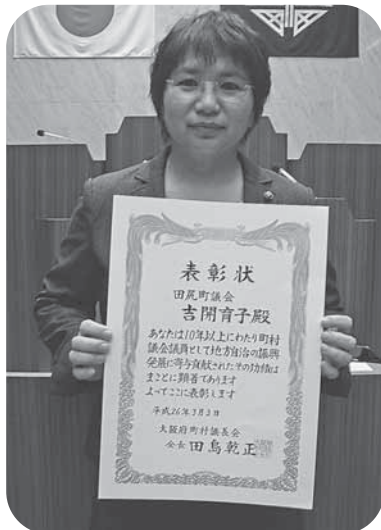 表彰状
田尻町議会
吉開育子殿
あなたは10年以上にわたり町村
議会議員として地方自治の振興
発展に寄与貢献されたその功績は
まことに顕著であります
よってここに表彰します
平成26年3月3日
大阪府町村議長会
会長 田島乾正